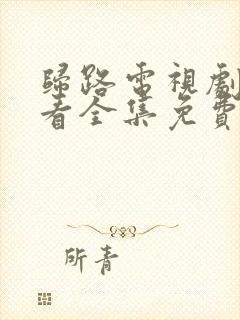 歸路電視劇
看全集免費
所青